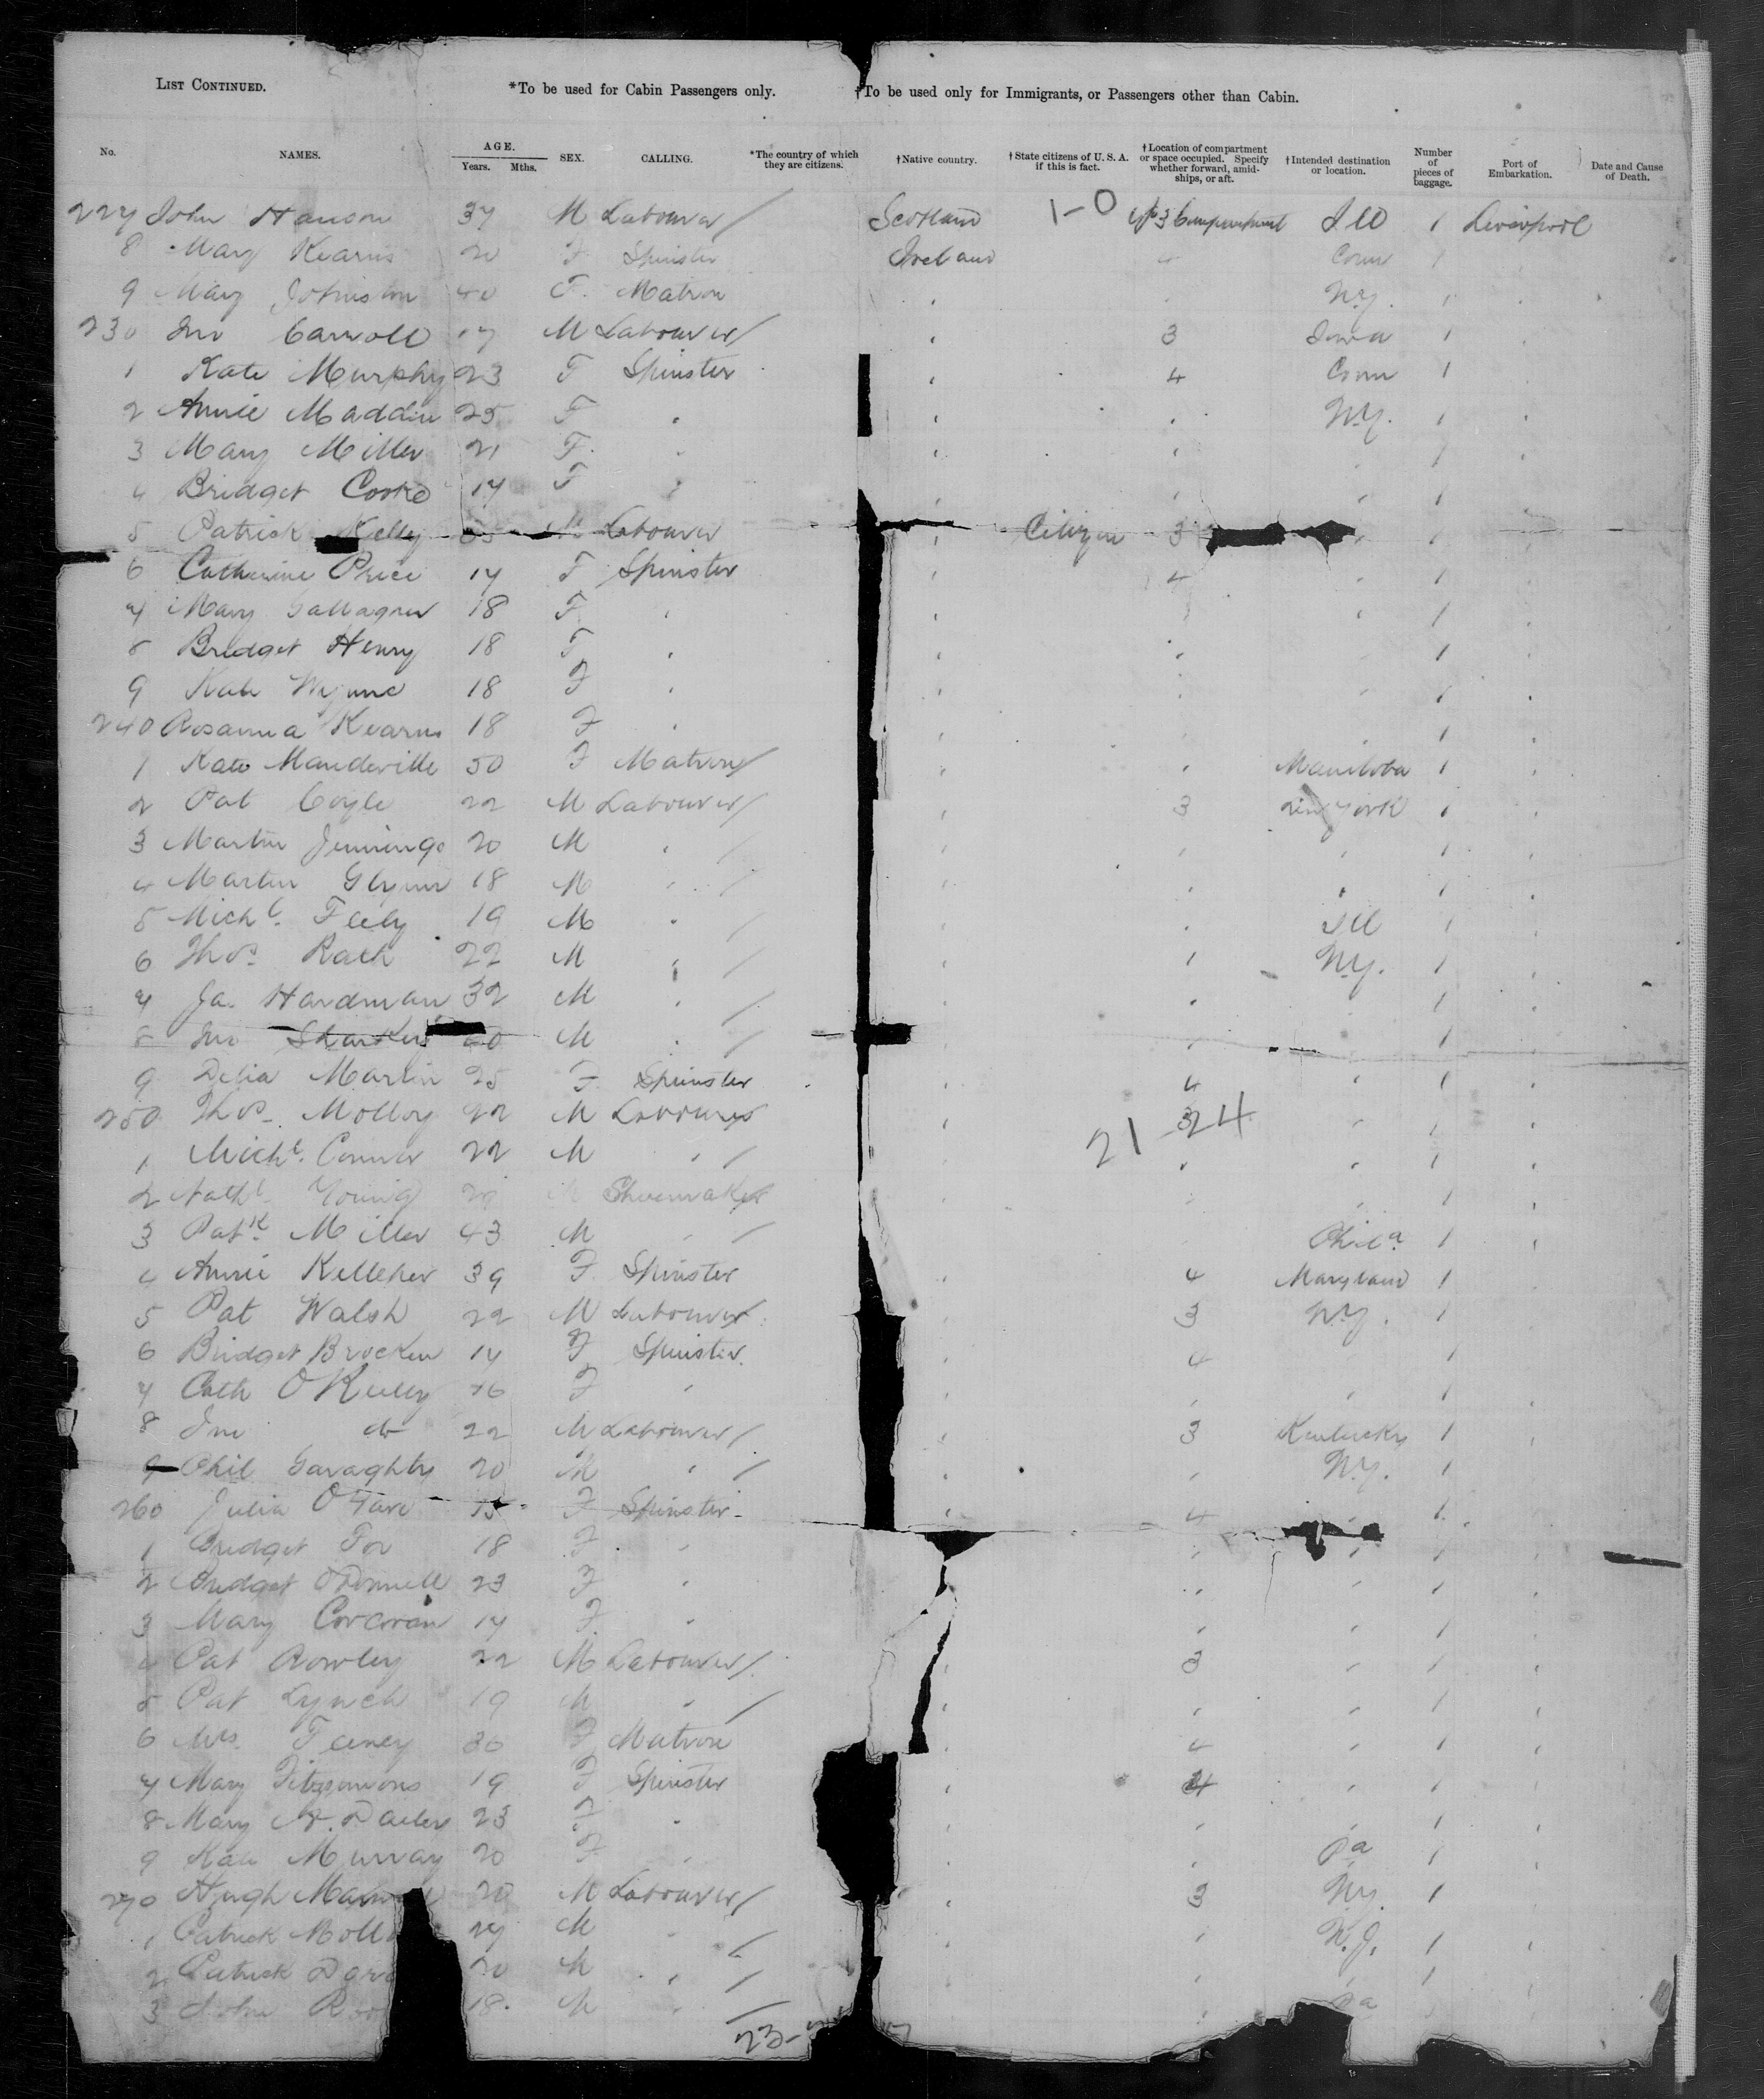 LIST CONTINUED. *To be used for Cabin Passengers only. †To be used only for Immigrants, or Passengers other than Cabin.
No. NAMES. AGE. Years. Mths. SEX. CALLING. *The country of which they are citizens. †Native country. †State citizens of U. S. A. if this is fact. †Location of compartment or space occupied. Specify whether forward, amidships, or aft. †Intended destination or location. Number of pieces of baggage. Port of Embarkation. Date and Cause of Death.
227 John Hanson 37 M Labourer / Scotland 1-0 No 3 Compartment Ill 1 Liverpool
8 Mary Kearns 20 F Spinster Ireland 4 Conn 1
9 Mary Johnston 40 F. Matron " " N.Y. 1 "
230 Jno Carroll 17 M Labourer / " 3 Iowa 1 "
1 Kate Murphy 23 F Spinster " 4 Conn 1 "
2 Annie Maddin 25 F " " " N.Y. 1 "
3 Mary Miller 21 F. " " " " 1 "
4 Bridget Cooke 17 F " " " " 1 "
5 Patrick Kelly M Labourer " Citizen 3 " 1 "
6 Catherine Price 17 F Spinster " 4 " 1 "
7 Mary Gallagher 18 F " " " " 1 "
8 Bridget Henry 18 F " " " " 1 "
9 Kate Wynne 18 F " " " " 1 "
240 Rosanna Kearns 18 F " " " " 1 "
1 Kate Mandeville 50 F Matron / " " Manitoba 1 "
2 Pat Coyle 22 M Labourer / " 3 New York 1 "
3 Martin Jennings 20 M " / " " " 1 "
4 Martin Glynn 18 M " / " " " 1 "
5 Michl. Feely 19 M " / " " Ill 1 "
6 Thos. Rath 22 M " / " " N.Y. 1 "
7 Ja. Hardman 32 M " / " " " 1 "
8 Jno Sharkey M " / " " " 1 "
9 Delia Martin 25 F Spinster " 4 " 1 "
250 Thos. Molloy 22 M Labourer " 3 " 1 "
21 24
1 Michl. Connor 22 M " / " " " 1 "
2 Nathl. Young M Shoemaker " " " 1 "
3 Patk. Miller 43 M " / " Phila. 1 "
4 Annie Kelleher 39 F Spinster " 4 Maryland 1 "
5 Pat Walsh 22 M Labourer " 3 N.Y. 1 "
6 Bridget Brocken 17 F Spinster " 4 " 1 "
7 Cath O'Reilly F " " " " 1 "
8 Jno do 22 M Labourer / " 3 Kentucky 1 "
9 Phil Garaghty 20 M " / " " N.Y. 1 "
260 Julia 15 F Spinster " 4 " 1 "
1 Bridget Fox 18 F " " " " 1 "
2 Bridget O'Donnell 23 F " " " " 1 "
3 Mary Corcoran 17 F " " " " 1 "
4 Pat Rowley 22 M Labourer / " 3 " 1 "
5 Pat Lynch 19 M " / " " " 1 "
6 Mrs. Feeney 30 F Matron " 4 " 1 "
7 Mary Fitzsimons 19 F Spinster " 4 " 1 "
8 Mary 23 F " " " " 1 "
9 Kate Murray 20 F " " " Pa 1 "
270 Hugh 20 M Labourer / " 3 N.Y. 1 "
1 Patrick 27 M " / " " N.J. 1 "
2 Patrick 20 M " / " " " 1 "
3 John 18. M " / " Pa
23-